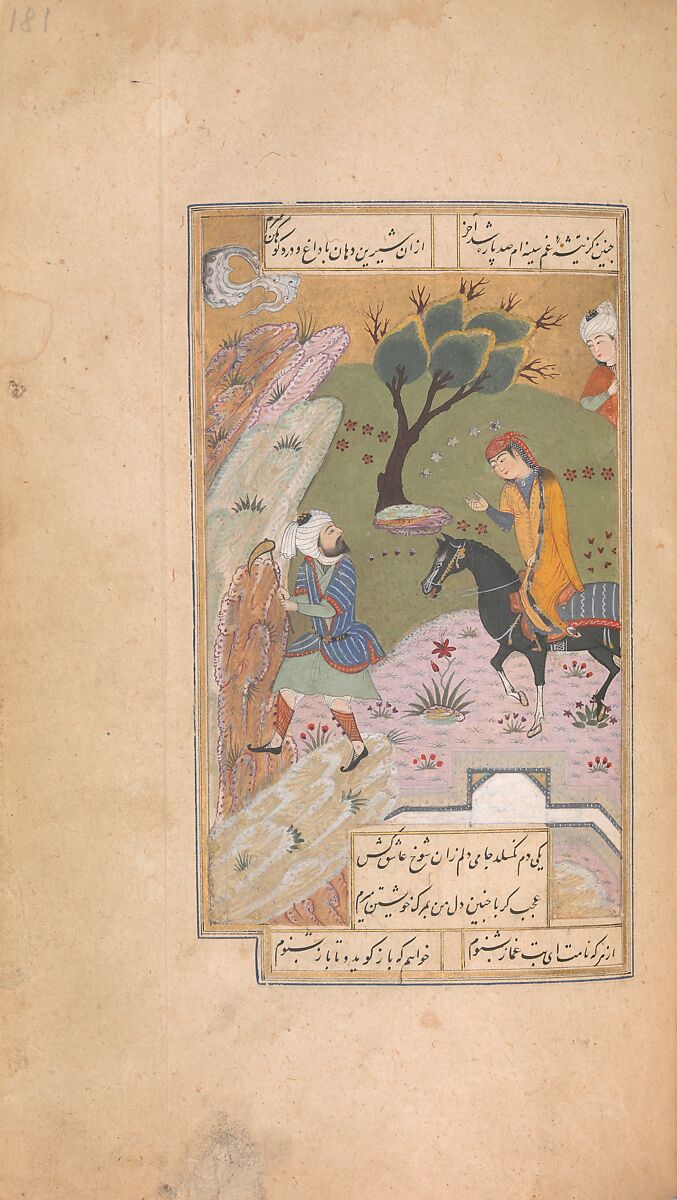 181
چنین کز تیشهٔ غم سینه‌ام صد پاره شد آخر
ازان شیرین دهان با داغ و درد کوهکن میرم
یکی دم نگسلد جامی دلم زان شوخ عاشق کش
عجب کر با چنین دل من بمرک خویشتن میرم
از هر که نامت ای بت غماز بشنوم
خواهم که باز کوید و تا باز بشنوم